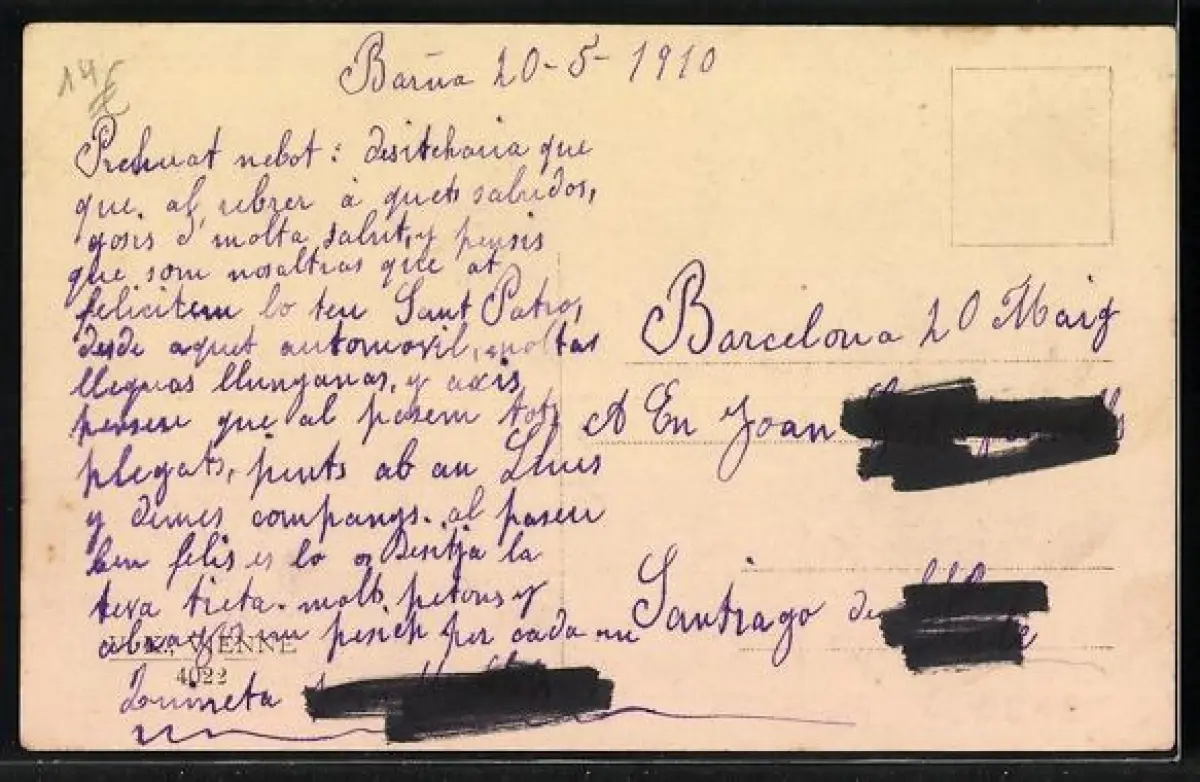 Barña 20-5-1910
14€
Prehuat nebot: desitcharia que
que al rebrer à quets saludos,
gosis d'molta salut, y pensis
que som nosaltras que at
felicitem lo teu Sant Patro,
desde aquet automovil, moltas
lleguas llunyanas, y axis
pensem que al pasem tots
plegats, junts ab an Lluis
y demes companys. al pasem
ben felis es lo q Desitja la
teva tieta. molts petons y
un pesich per cada un
WIENNE
4022
Barcelona 20 Maig
A En Joan
Santiago de